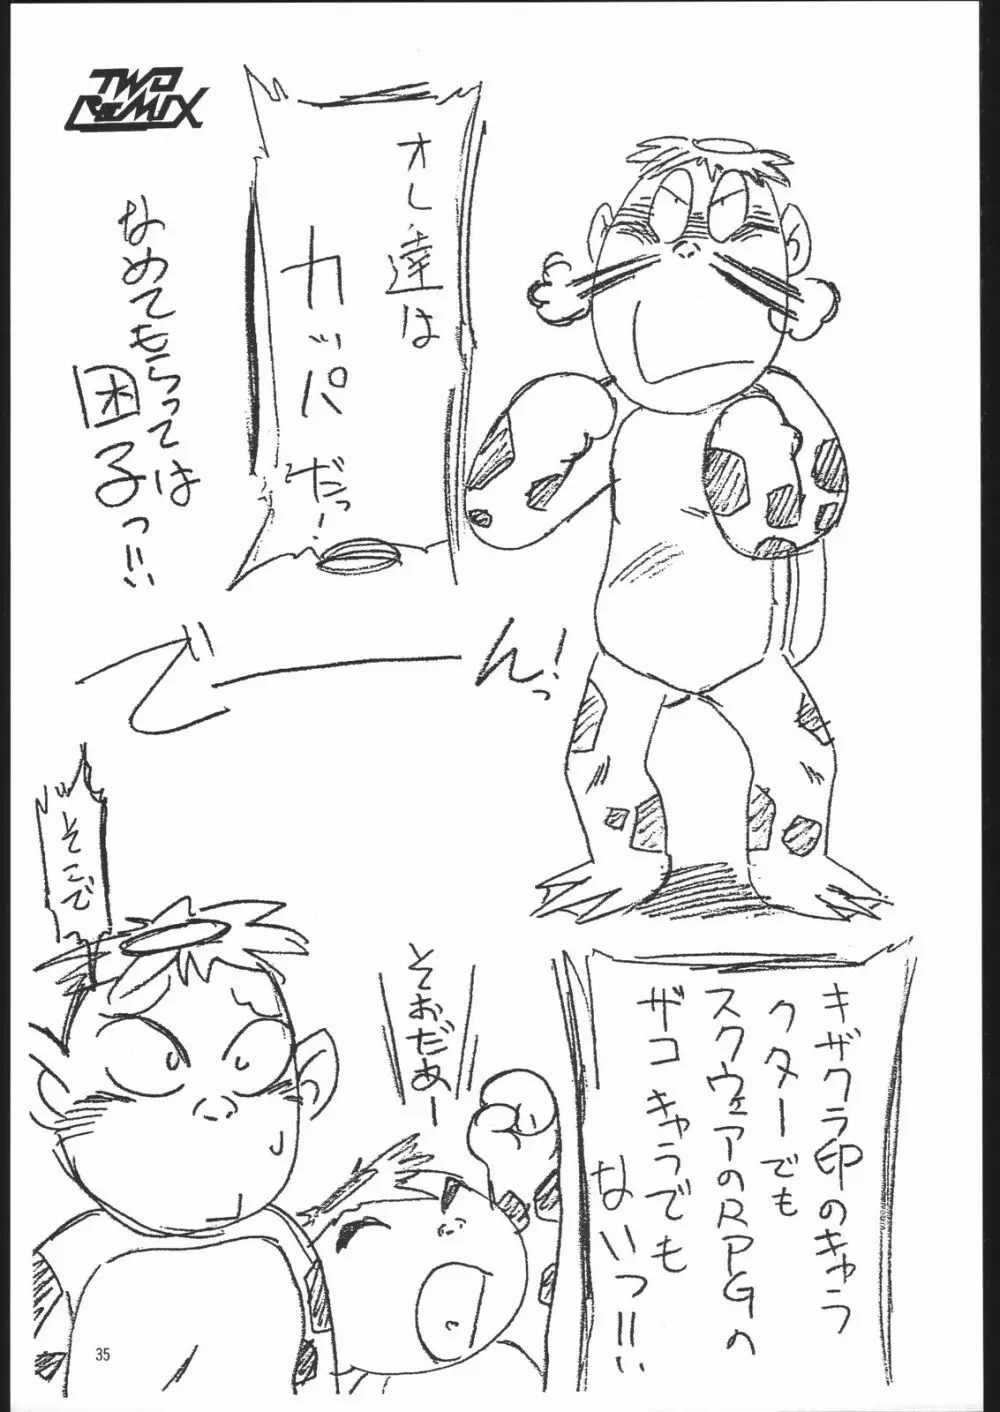 TWO
REMIX
オレ達は
カッパ
だっ!
なめてもらっては
困る子っ!!
でーん!っ
キザクラ印のキャラ
クターでも
スクウェアのRPGの
ザコキャラでも
ないっ!!
そおだあー
そこで
35